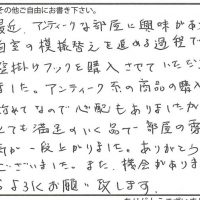 その他ご自由にお書き下さい。
最近、アンティークな部屋に興味があ
自室の模様替えを進める過程で
壁掛けフックを購入させていただ
ました。アンティーク系の商品の購入
初めてなので心配もありましたが
ても満足のいく品で部屋の雰
気が一段上がりました。ありがとう
ございました。また、機会がありま
よろしくお願い致します。